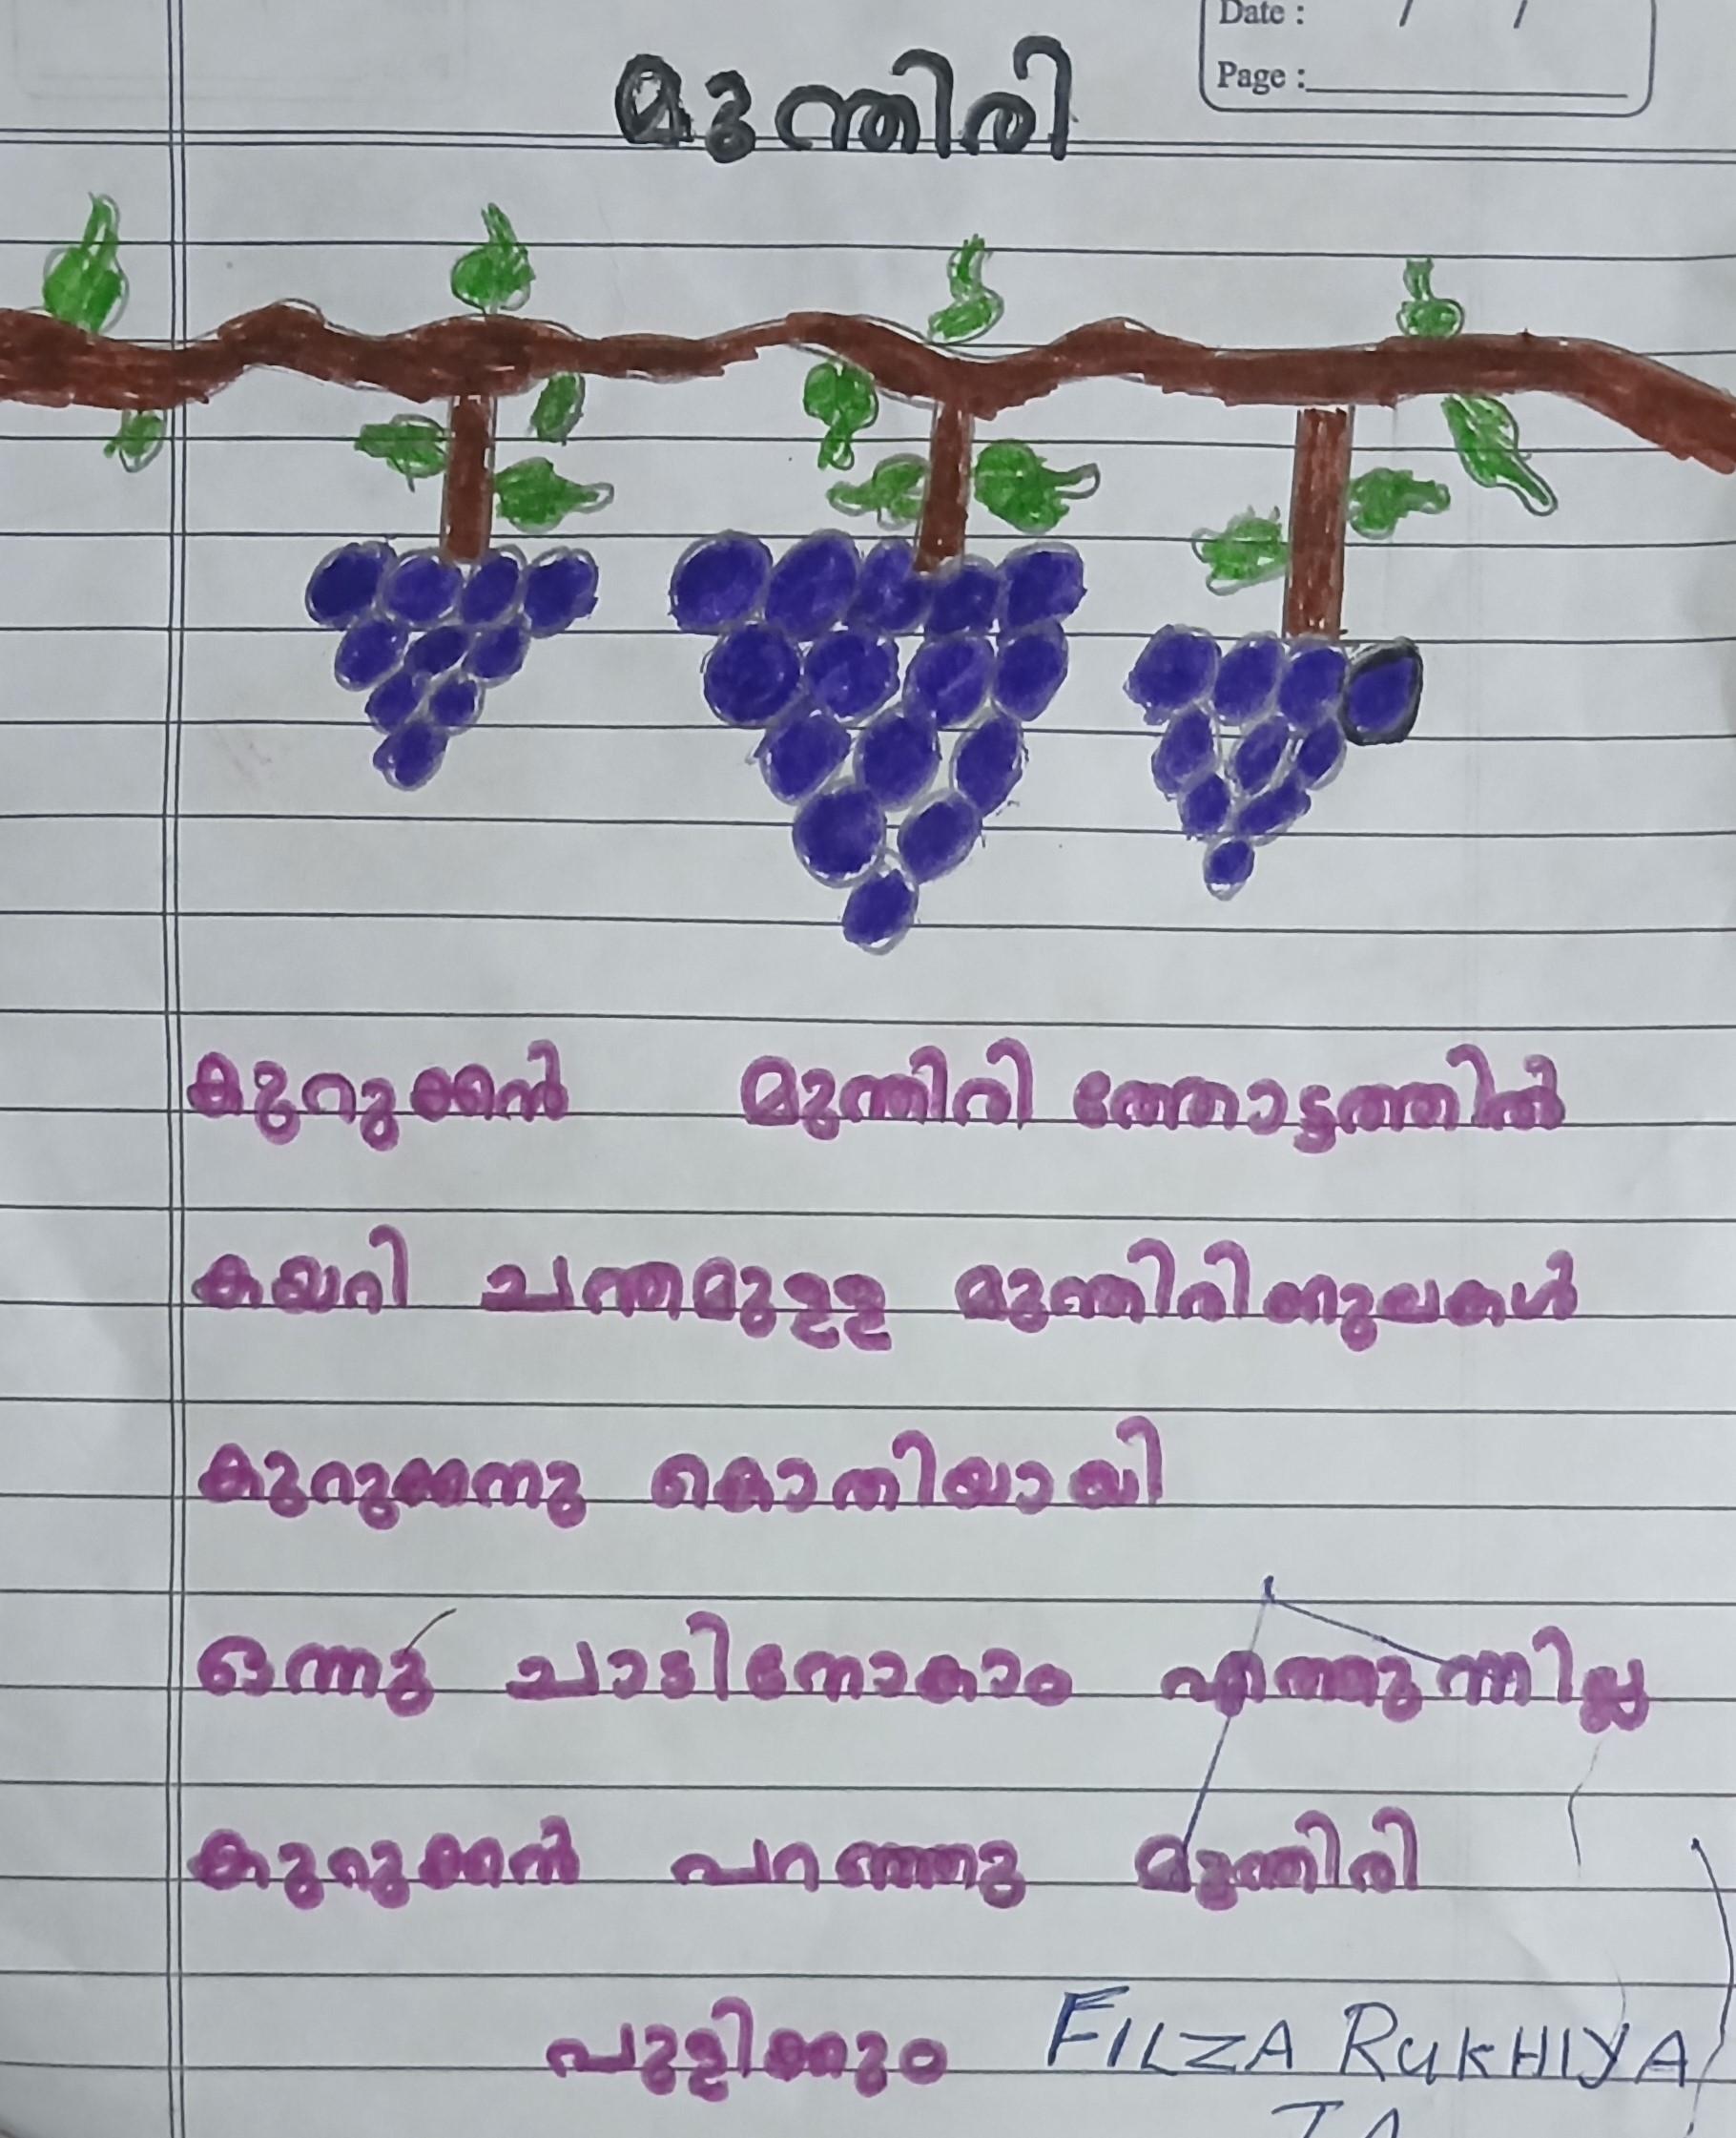 Date : / /
Page :
മുന്തിരി
കുറുക്കൻ മുന്തിരി ത്തോട്ടത്തിൽ
കയറി ചന്തമുള്ള മുന്തിരിക്കുലകൾ
കുറുക്കനു കൊതിയായി
ഒന്നു ചാടിനോകാം എത്തുന്നില്ല
കുറുക്കൻ പറഞ്ഞു മുന്തിരി
പുളിക്കും FILZA RUKHIYA